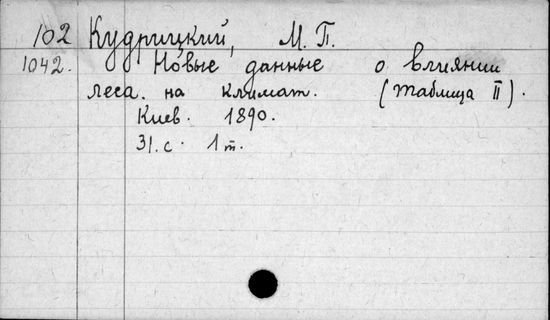 102 Кудрицкий, М. П.
1042. Новые данные о влиянии
леса на климат. (таблица II).
Киев. 1890.
31. с. 1 т.